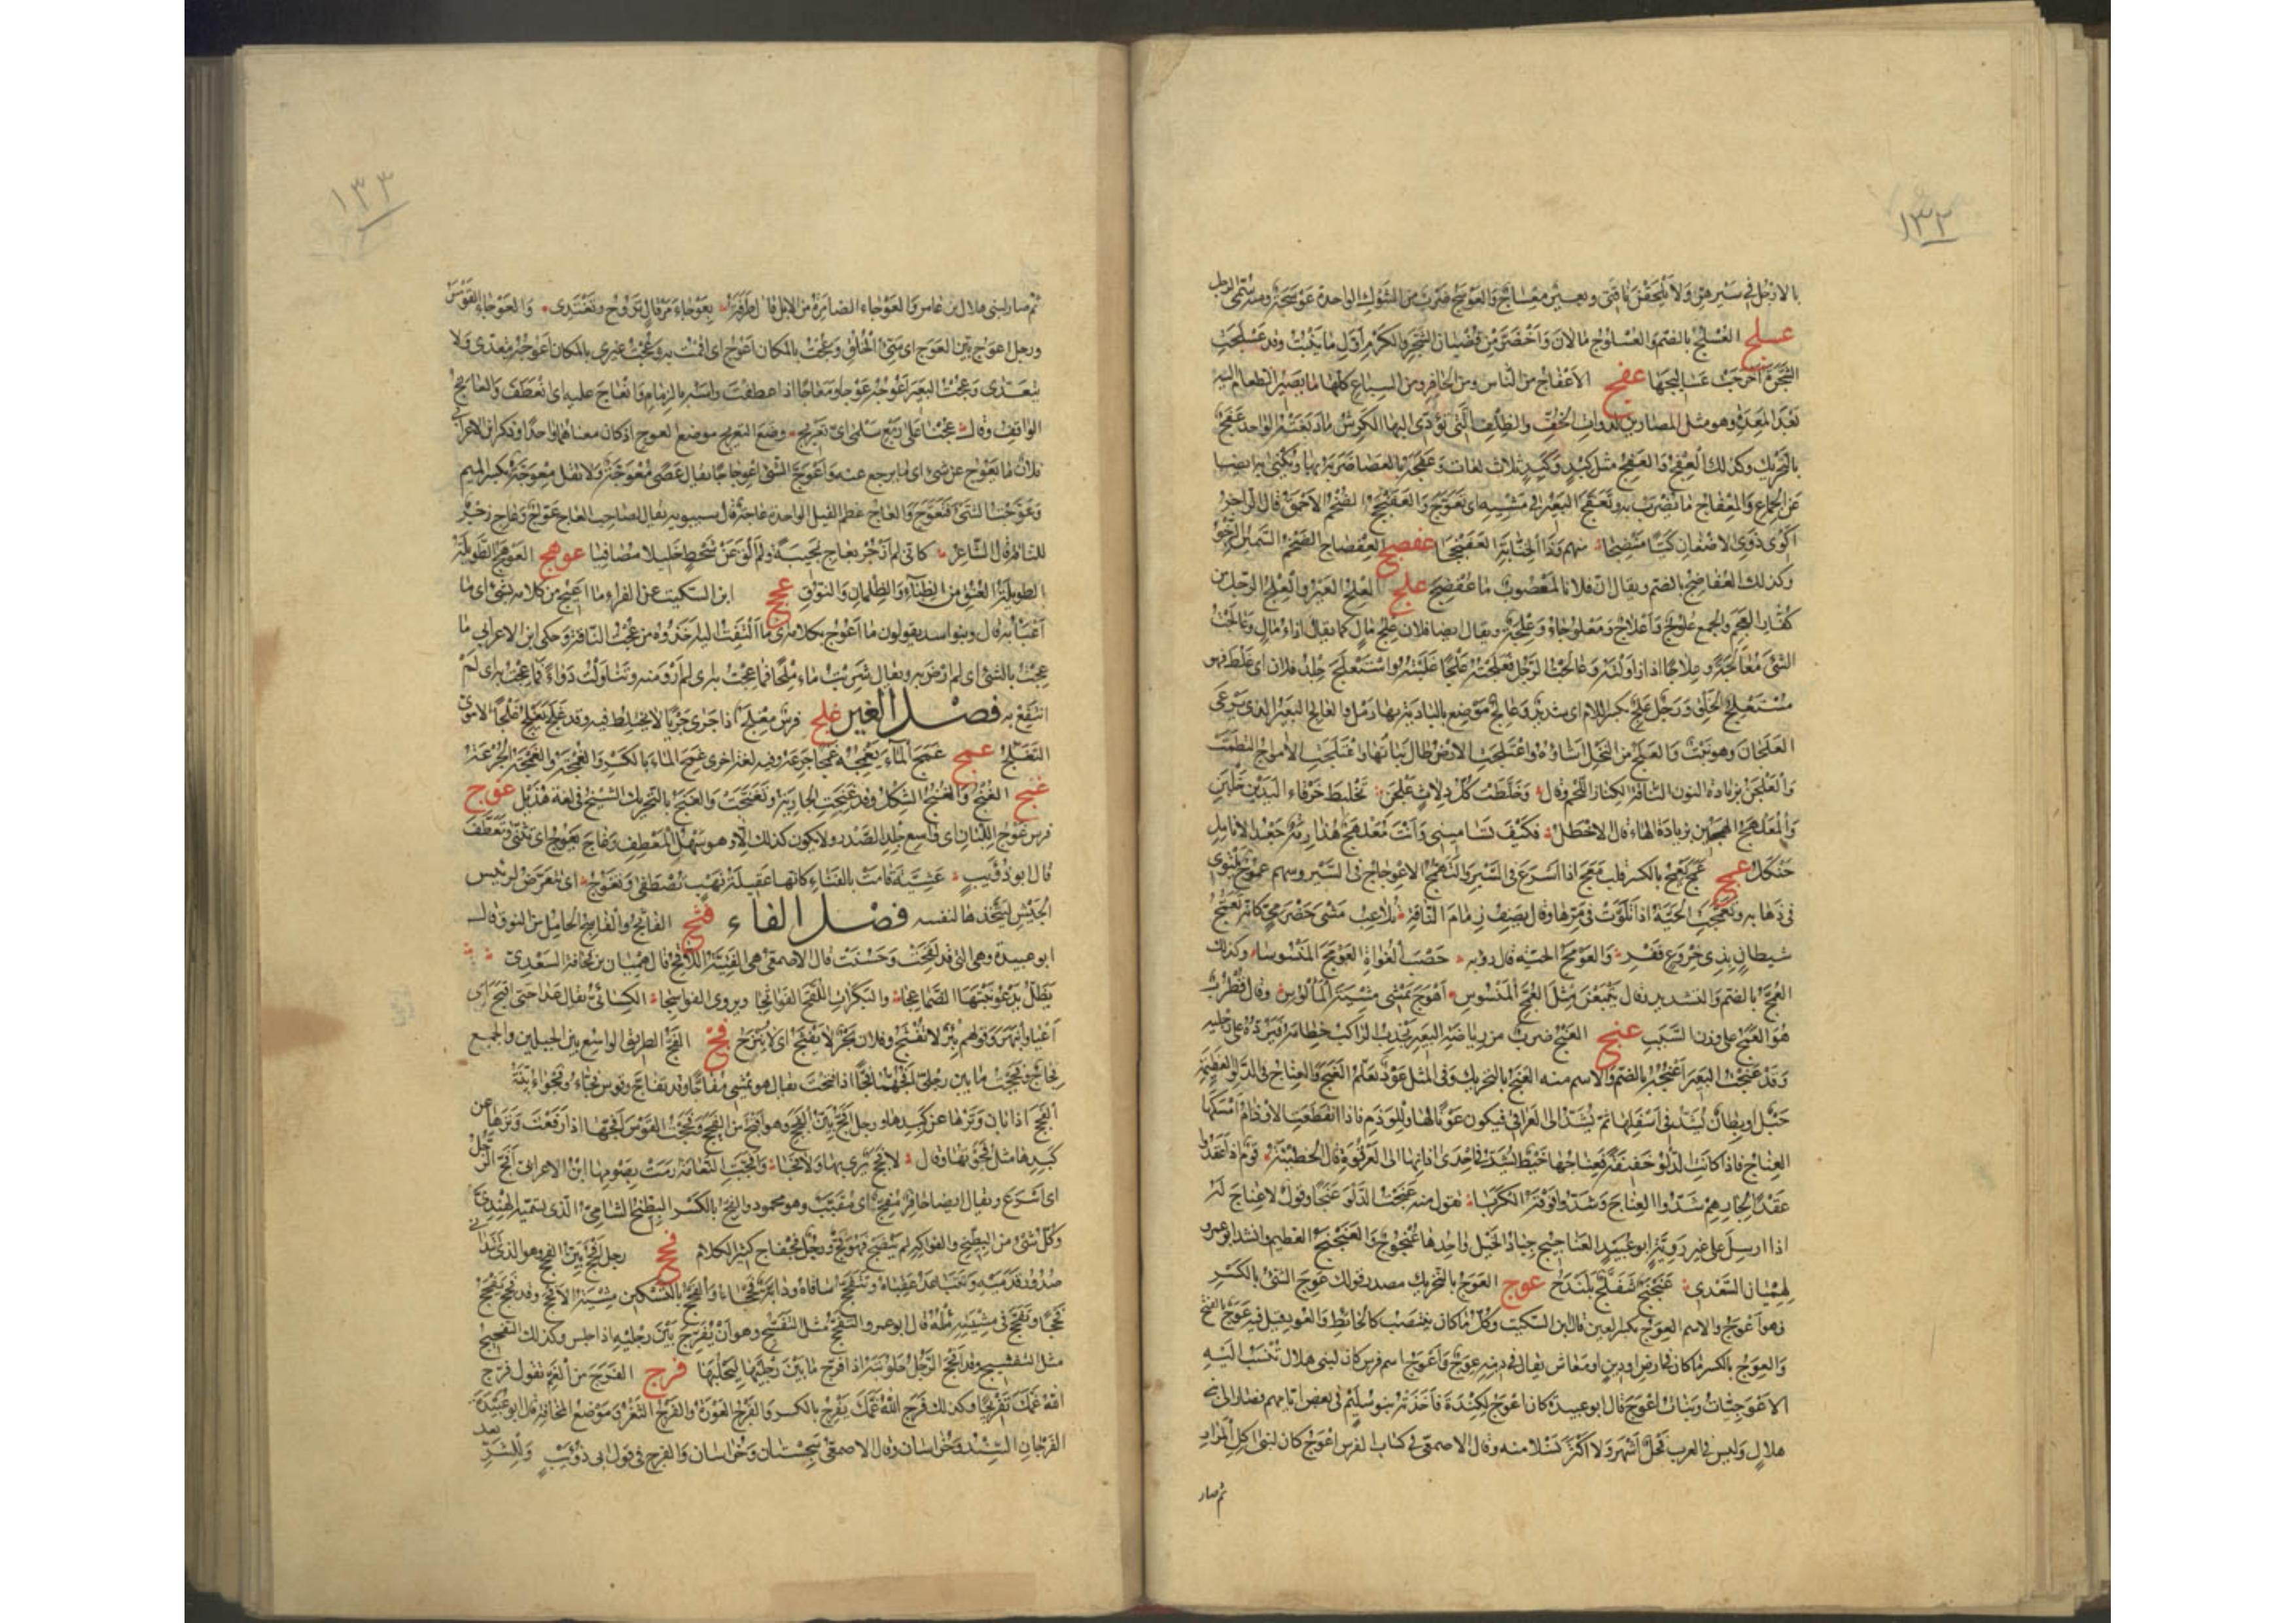 ١٣٢
بالارجل في سيرهن ولا يلحقن ناقتي وبعير معساج والعوسج ضرب من الشوك الواحدة عوسجة ومنه سمى الرجل
عسلج العسلج بالضم والعسلوج ما لان واخضر من قضبان الشجر والكرم اول ما ينبت وقد عسلجت
الشجرة اخرجت عساليجها عفج الاعفاج من الناس ومن الحافر ومن السباع كلها ما يصير الطعام اليه
بعد المعدة وهو مثل المصارين لذوات الخف والظلف التى تؤدى اليها الكرش ما دبغته الواحد عفج
بالتحريك وكذلك العفج والعفج مثل كبد وكبد ثلاث لغات وعفجه بالعصا ضربه بها ويكنى به ايضا
عن الجماع والمعفاج ما يضرب به وتعفج البعير في مشيه اى تعوج والعفنجج الضخم الاحمق قال الراجز
اكوى ذوى الاضغان كيا منضجا منهم وذا الخنابة العفنججا عفضج العفضاج الضخم السمين الرخو
وكذلك العفاضج بالضم ويقال ان فلانا لمعصوب ما عفضج علج العلج العير والعلج الرجل من
كفار العجم والجمع علوج واعلاج ومعلوجاء وعلجة ويقال ايضا فلان علج مال كما يقال ازاء مال وعالجت
الشئ معالجة وعلاجا اذا زاولته وعالجت الرجل فعلجته علجا غلبته واستعلج جلد فلان اى غلظ فهو
مستعلج الخلق ورجل علج بكسر اللام اى شديد وعالج موضع بالبادية بها رمل والعالج البعير الذى يرعى
العلجان وهو نبت والعلج من النخل اشاؤه واعتلجت الارض طال نباتها واعتلجت الامواج التطمت
والعلجن بزيادة النون الناقة الكناز اللحم وقال وخلطت كل دلاث علجن تخليط خرقاء اليدين خلبن
والمعلهج الهجين بزيادة الهاء قال الاخطل فكيف تساميني وانت معلهج هذارمة جعد الانامل
حنكل عمج عمج يعمج بالكسر قلب معج اذا اسرع في السير والتعمج الاعوجاج في السير وسهم عموج يتلوى
في ذهابه وتعمجت الحية اذا تلوت في مرها وقال يصف زمام الناقة تلاعب مثنى حضرمى كانه تعمج
شيطان بذى خروع قفر والعومج الحية قال رؤبه حصب الغواة العومج المنسوسا وكذلك
العمج بالضم والتشديد قال يتبعن مثل العمج المنسوس اهوج يمشى مشية المالوس وقال قطرب
هو العمج على وزن السبب عنج العنج ضرب من رياضة البعير يجذب الراكب خطامه فيرده على رجليه
وقد عنجت البعير اعنجه بالضم والاسم منه العنج بالتحريك وفي المثل عود يعلم العنج والعناج في الدلو العظيمة
حبل او بطان يشد في اسفلها ثم يشد الى العراقي فيكون عونا لها وللوذم فاذا انقطعت الاوذام امسكها
العناج فاذا كانت الدلو خفيفة فعناجها خيط يشد في احدى اذانها الى العرقوة قال الحطيئة قوم اذا عقدوا
عقدا لجارهم شدوا العناج وشدوا فوقه الكربا تقول منه عنجت الدلو عنجا وقول لا عناج له
اذا ارسل على غير روية ابو عبيد العناجيج جياد الخيل واحدها عنجوج والعنجنج العظيم وانشد ابو عمرو
لهميان السعدى عنجنج شفلح بلندح عوج العوج بالتحريك مصدر قولك عوج الشئ بالكسر
فهو اعوج والاسم العوج بكسر العين قال ابن السكيت وكل ما كان ينتصب كالحائط والعود قيل فيه عوج بالفتح
والعوج بالكسر ما كان في ارض او دين او معاش يقال في دينه عوج واعوج اسم فرس كان لبني هلال تنسب اليه
الاعوجيات وبنات اعوج قال ابو عبيدة كان اعوج لكندة فاخذته بنو سليم في بعض ايامهم فصار الى بنى
هلال وليس في العرب فحل اشهر ولا اكثر نسلا منه وقال الاصمعي في كتاب الفرس اعوج كان لبني اكل المرار
ثم صار
١٣٣
ثم صار لبني هلال بن عامر والعوجاء الضامرة من الابل قال طرفة بعوجاء مرقال تروح وتغتدى والعوجاء القوس
ورجل اعوج بين العوج اى سئ الخلق وعجت بالمكان اعوج اى اقمت به وعجت غيرى بالمكان اعوجه يتعدى ولا
يتعدى وعجت البعير اعوجه عوجا ومعاجا اذا عطفت راسه بالزمام وانعاج عليه اى انعطف والعائج
الواقف وقال عجنا على ربع سلمى اى تعريج وضع التعريج موضع العوج اذ كان معناهما واحدا وذكر ابن الاعرابي
فلان ما يعوج عن شئ اى ما يرجع عنه واعوج الشئ اعوجاجا يقال عصى معوجة ولا تقل معوجة بكسر الميم
وعوجت الشئ فتعوج والعاج عظم الفيل الواحدة عاجة قال سيبويه يقال لصاحب العاج عواج وعاج زجر
للناقة قال الشاعر كانى لم ازجر بعاج نجيبة ولم الق عن شحط خليلا مصافيا عوهج العوهج الطويلة
الطويلة العنق من الظباء والظلمان والنوق عيج ابن السكيت عن الفراء ما اعيج من كلامه بشئ اى ما
اعبأ به قال وبنو اسد يقولون ما اعوج بكلامه اى ما التفت اليه اخذوه من عجت الناقة وحكى ابن الاعرابي ما
عجت بالشئ اى لم ارض به ويقال شربت ماء ملحا فما عجت به اى لم ارو منه وتناولت دواء فما عجت به اى لم
انتفع به فصل الغين غلج فرس مغلج اذا جرى جريا لا يختلط فيه وقد غلج يغلج غلجا الاموى
التغلج غمج غمج الماء يغمجه غمجا جرعه وفيه لغة اخرى غمج الماء بالكسر والغمجة والغمجة الجرعة
غنج الغنج والغنج الشكل وقد غنجت الجارية وتغنجت والغنج بالتحريك الشيخ في لغة هذيل غوج
فرس غوج اللبان اى واسع جلد الصدر ولا يكون كذلك الا وهو سهل المعطف وغاج يغوج اى تثنى وتعطف
قال ابو ذؤيب عشية قامت بالفناء كانها عقيلة نهب تصطفى وتغوج اى تتعرض لرئيس
الجيش ليتخذها لنفسه فصل الفاء فثج الفاثج والفاسج الحامل من النوق قال
ابو عبيدة وهي التى قد لقحت وحسنت قال الاصمعي هي الفتية اللاقح قال هميان بن قحافة السعدى
يظل يدعو نيبها الضماعجا والبكرات اللقح الفواثجا ويروى الفواسجا الكسائي يقال عدا حتى افثج اى
اعيا وانبهر وقولهم بئر لا تفثج وفلان بحر لا يفثج اى لا ينزح فج الفج الطريق الواسع بين الجبلين والجمع
فجاج وفججت ما بين رجلي افجهما فجا اذا فتحت يقال هو يمشى مفاجا وقد تفاج وقوس فجاء وفجواء بينة
الفجج اذا بان وترها عن كبدها ورجل افج بين الفجج وهو اقبح من الفحج وفججت القوس افجها اذا رفعت وترها عن
كبدها مثل فجوتها وقال لا فحج يرى بها ولا فجا وافجت النعامة رمت بصومها ابن الاعرابي افج الرجل
اى اسرع ويقال ايضا حافر مفج اى مقبب وهو محمود والفج بالكسر البطيخ الشامي الذى تسميه الفرس الهندى
وكل شئ من البطيخ والفواكه لم ينضج فهو فج ورجل فجفاج كثير الكلام فحج رجل افحج بين الفحج وهو الذى تتدانى
صدور قدميه وتتباعد عقباه وتتفحج ساقاه ودابة فحجاء والفحج بالتسكين مشية الافحج وقد فحج يفحج
فحجا وتفحج في مشيته مثله قال ابو عمرو التفحج مثل التفشح وهو ان يفرج بين رجليه اذا جلس وكذلك التفحيج
مثل التفشيح وقد افحج الرجل حلوبته اذا فرج ما بين رجليها ليحلبها فرج الفرج من الغم تقول فرج
الله غمك تفريجا وكذلك فرج الله غمك يفرج بالكسر والفرج العورة والفرج الثغر وموضع المخافة قال ابو عبيدة
الفرجان السند وخراسان وقال الاصمعي سجستان وخراسان والفرج في قول ابى ذؤيب وللشر بعد